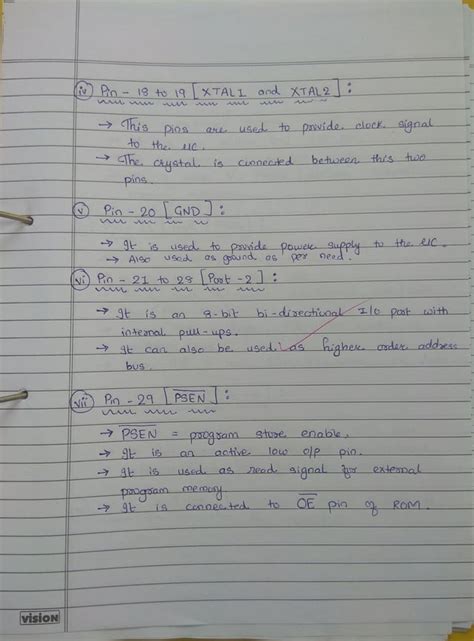 iv Pin - 18 to 19 [XTAL1 and XTAL2] :
→ This pins are used to provide clock signal
to the μC.
→ The crystal is connected between this two
pins.
v Pin - 20 [GND] :
→ It is used to provide power supply to the μC.
→ Also used as ground as per need.
vi Pin - 21 to 28 [Port - 2] :
→ It is an 8-bit bi-directional I/O port with
internal pull-ups.
→ It can also be used as higher order address
bus.
vii Pin - 29 [P̅S̅E̅N̅] :
→ P̅S̅E̅N̅ = program store enable.
→ It is an active low o/p pin.
→ It is used as read signal for external
program memory.
→ It is connected to O̅E̅ pin of ROM.
vision